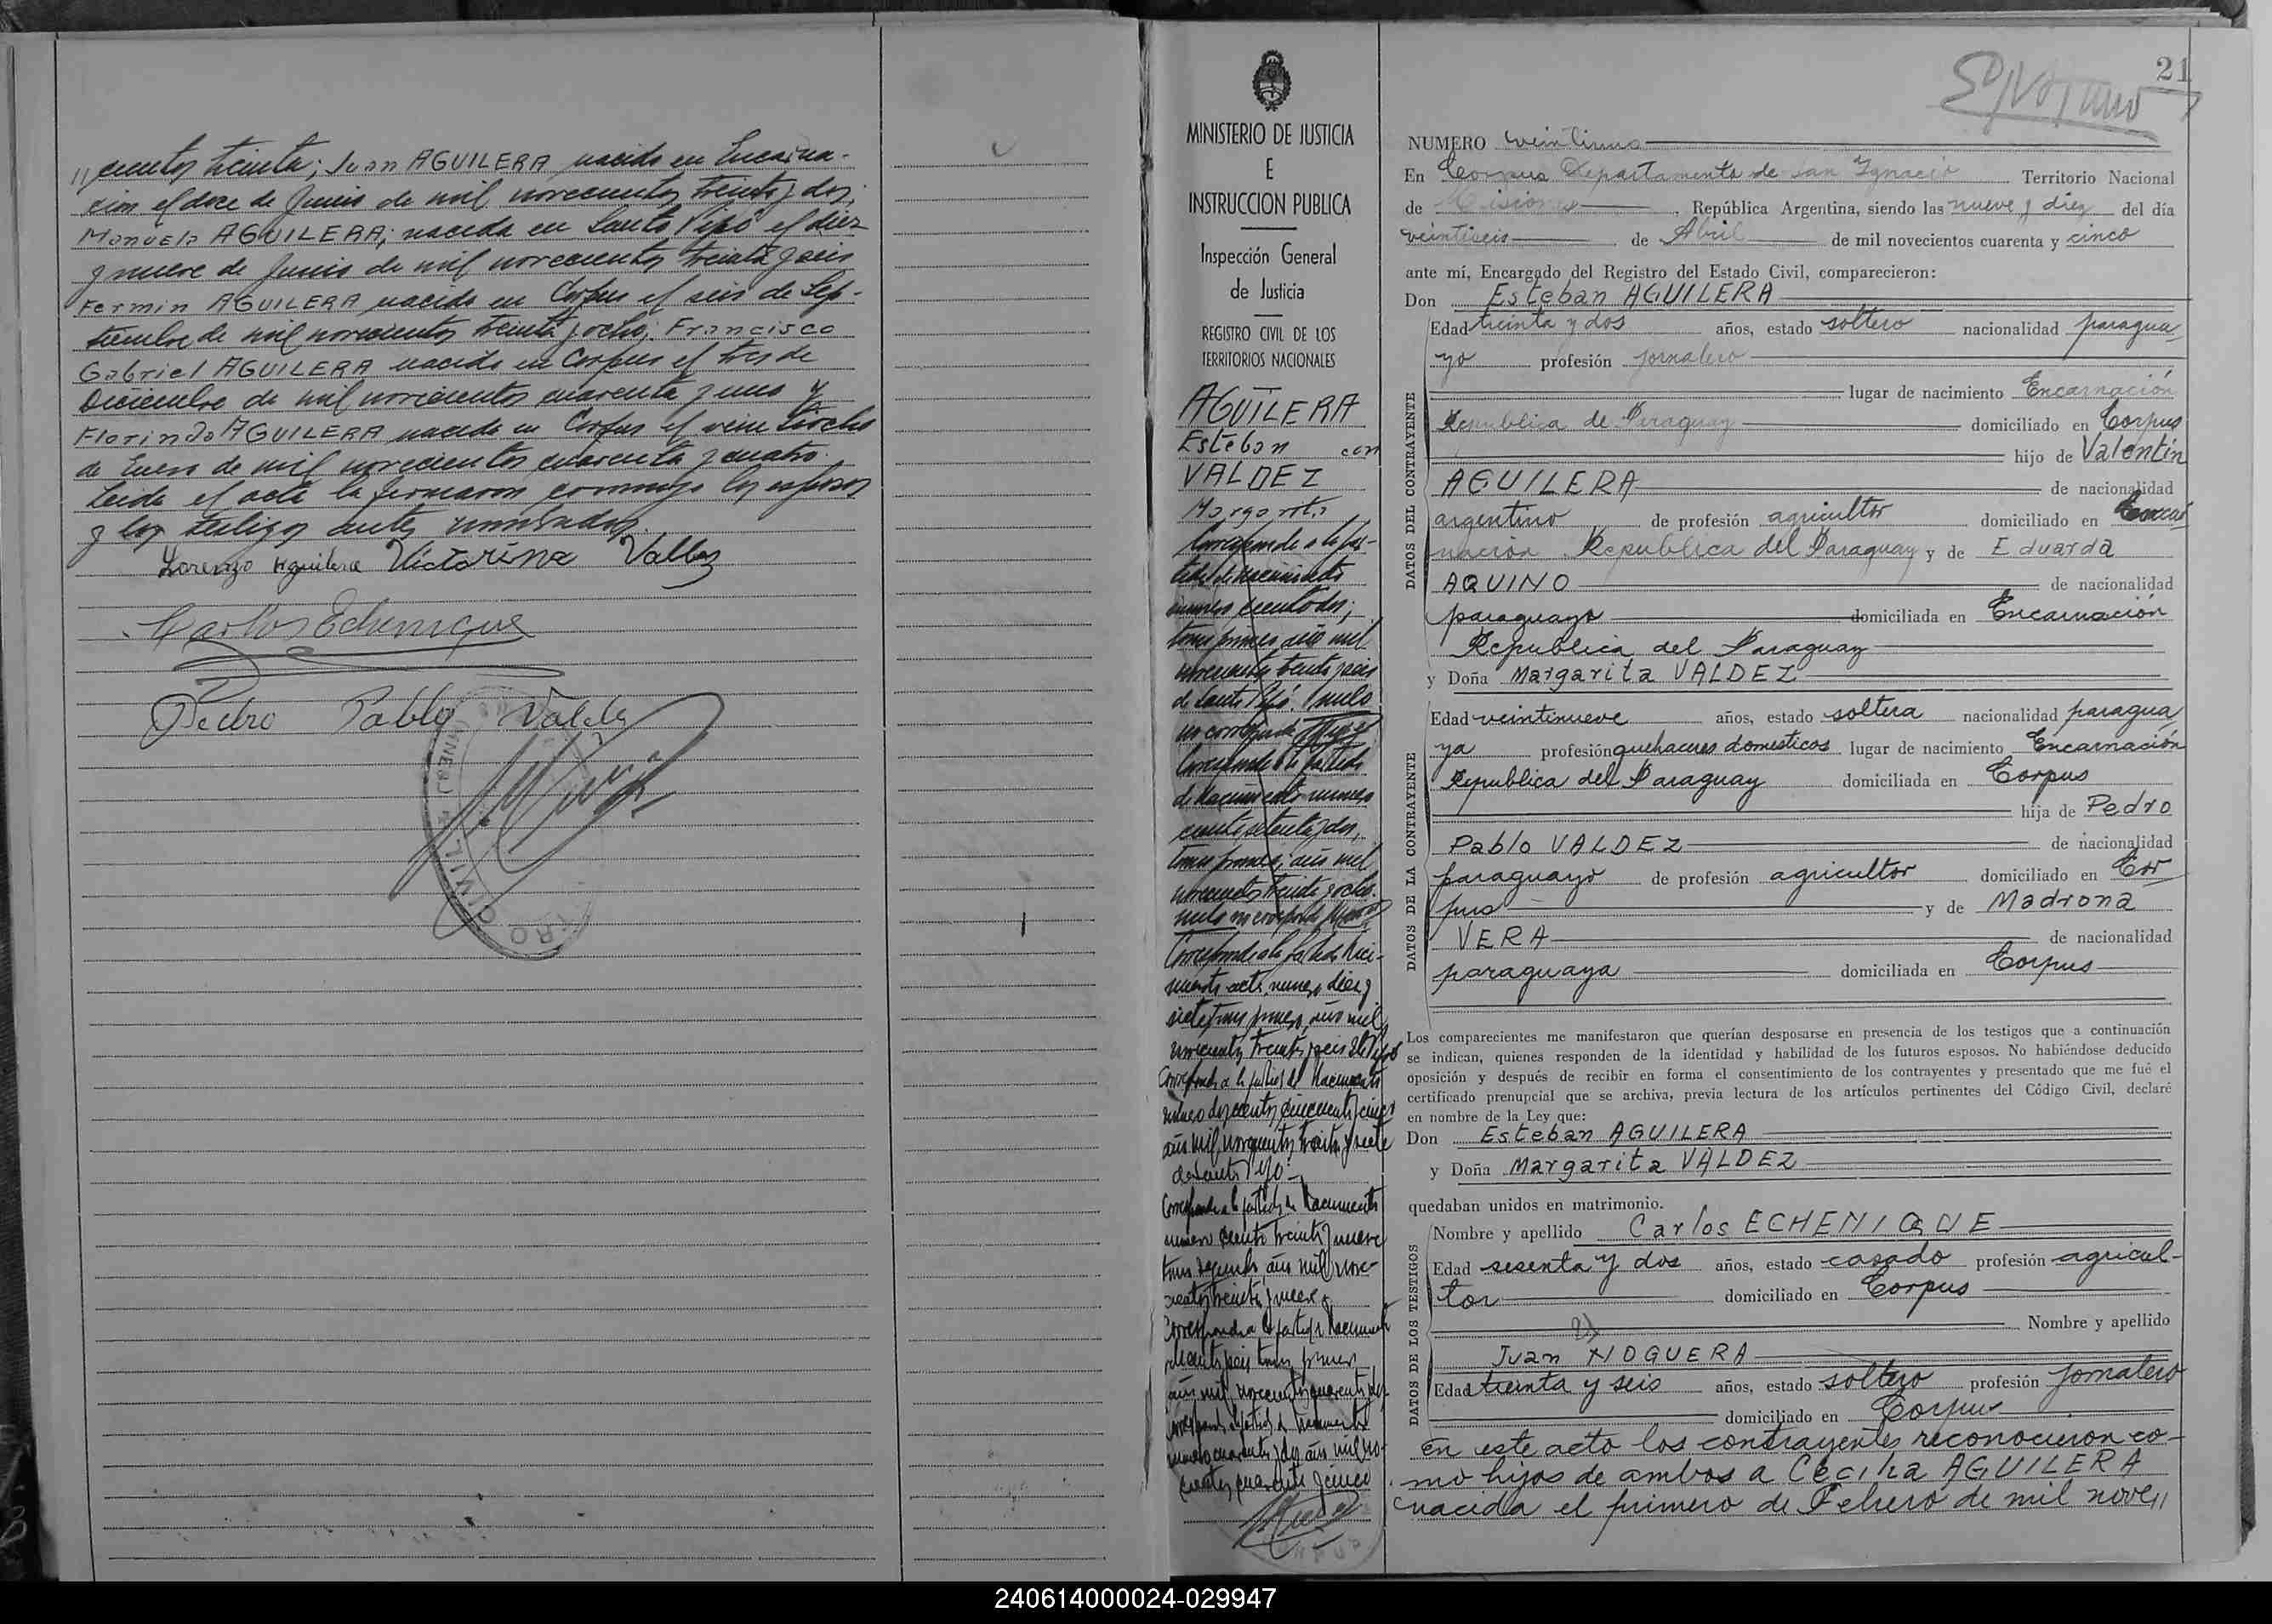 // cientos treinta; Juan AGUILERA nacido en Encarna-
cion el doce de Junio de mil novecientos treinta y dos;
Manuela AGUILERA; nacida en Santo Pipó el diez
y nueve de Junio de mil novecientos treinta y seis
Fermin AGUILERA nacido en Corpus el seis de Sep-
tiembre de mil novecientos treinta y ocho; Francisco
Gabriel AGUILERA nacido en Corpus el tres de
Diciembre de mil novecientos cuarenta y uno y
Florindo AGUILERA nacido en Corpus el veintiocho
de Enero de mil novecientos cuarenta y cuatro.
Leida el acta la firmaron conmigo los esposos
y los testigos antes nombrados.
Lorenzo Aguilera Victorina Valdez
Carlos Echenique
Pedro Pablo Valdez
MINISTERIO DE JUSTICIA
E
INSTRUCCION PUBLICA
Inspección General
de Justicia
REGISTRO CIVIL DE LOS
TERRITORIOS NACIONALES
AGUILERA
Esteban con
VALDEZ
Margarita
Corresponde a la par-
tida de nacimiento
numero ciento dos;
tomo primero año mil
novecientos treinta y seis
de Santo Pipó.
no corresponde
Corresponde a la partida
de Nacimiento numero
ciento setenta y dos,
tomo primero, año mil
novecientos treinta y ocho.
no corresponde
Corresponde a la partida Naci-
miento acta numero diez y
siete tomo primero, año mil
novecientos treinta y seis
Corresponde a la partida de Nacimiento
numero doscientos cincuenta y cinco
año mil novecientos treinta y siete
de Santo Pipó
Corresponde a la partida de Nacimiento
numero ciento treinta y nueve
tomo segundo, año mil nove-
cientos treinta y nueve
Corresponde a la partida Nacimiento
tomo primero
año mil novecientos cuarenta y dos
Corresponde a la partida de Nacimiento
numero cuarenta y dos año mil no-
vecientos cuarenta y cinco
21
NUMERO veintiuno
En Corpus Departamento de San Ignacio Territorio Nacional
de Misiones, República Argentina, siendo las nueve y diez del día
veintiseis de Abril de mil novecientos cuarenta y cinco
ante mí, Encargado del Registro del Estado Civil, comparecieron:
Don Esteban AGUILERA
DATOS DEL CONTRAYENTE
Edad treinta y dos años, estado soltero nacionalidad paragua
yo profesión jornalero
lugar de nacimiento Encarnación
Republica de Paraguay domiciliado en Corpus
hijo de Valentín
AGUILERA de nacionalidad
argentino de profesión agricultor domiciliado en Encar
nación Republica del Paraguay y de Eduarda
AQUINO de nacionalidad
paraguaya domiciliada en Encarnación
Republica del Paraguay
y Doña Margarita VALDEZ
DATOS DE LA CONTRAYENTE
Edad veintinueve años, estado soltera nacionalidad paragua
ya profesión quehaceres domesticos lugar de nacimiento Encarnación
Republica del Paraguay domiciliada en Corpus
hija de Pedro
Pablo VALDEZ de nacionalidad
paraguayo de profesión agricultor domiciliado en Cor
pus y de Madrona
VERA de nacionalidad
paraguaya domiciliada en Corpus
Los comparecientes me manifestaron que querían desposarse en presencia de los testigos que a continuación
se indican, quienes responden de la identidad y habilidad de los futuros esposos. No habiéndose deducido
oposición y después de recibir en forma el consentimiento de los contrayentes y presentado que me fué el
certificado prenupcial que se archiva, previa lectura de los artículos pertinentes del Código Civil, declaré
en nombre de la Ley que:
Don Esteban AGUILERA
y Doña Margarita VALDEZ
quedaban unidos en matrimonio.
DATOS DE LOS TESTIGOS
Nombre y apellido Carlos ECHENIQUE
Edad sesenta y dos años, estado casado profesión agricul-
tor domiciliado en Corpus
Nombre y apellido
Juan NOGUERA
Edad treinta y seis años, estado soltero profesión jornalero
domiciliado en Corpus
en este acto los contrayentes reconocieron co-
mo hijos de ambos a Cecilia AGUILERA
nacida el primero de Febrero de mil nove//
240614000024-029947